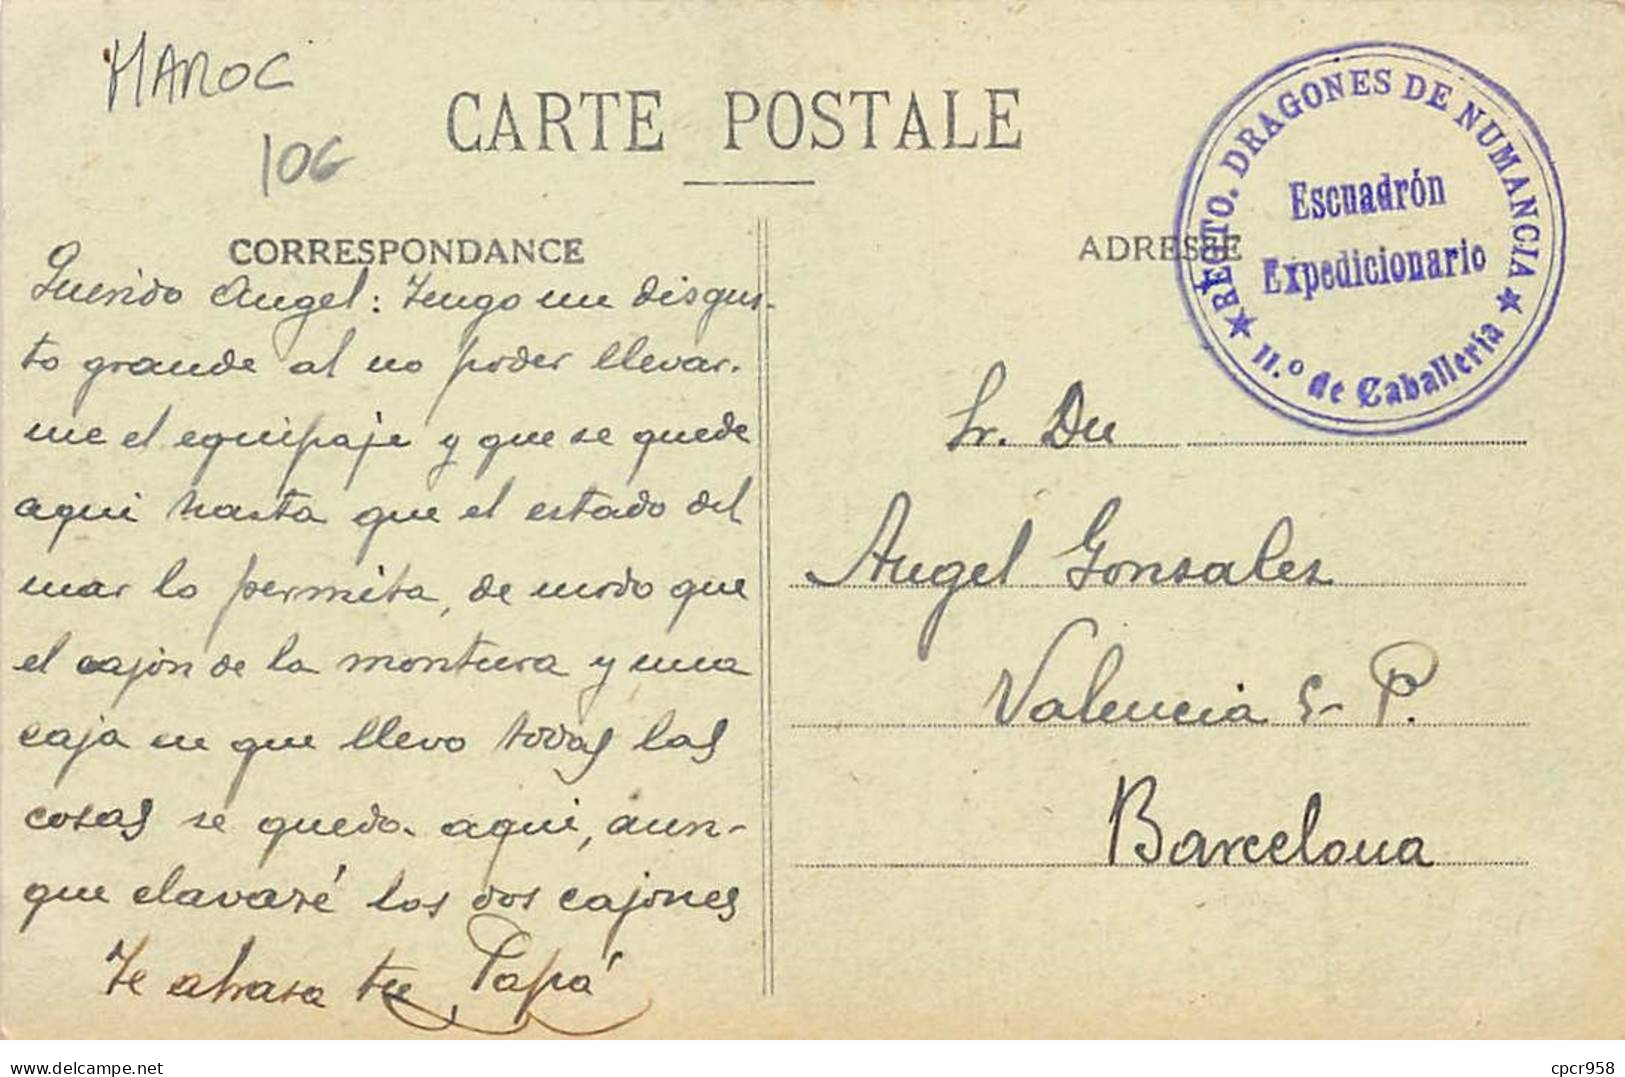 MAROC
106
CARTE POSTALE
CORRESPONDANCE
Querido Angel: Tengo un disgus-
to grande al no poder llevar-
me el equipaje y que se quede
aqui hasta que el estado del
mar lo permita, de modo que
el cajón de la montura y una
caja en que llevo todas las
cosas se queda aqui, aun-
que clavaré los dos cajones
Te abraza tu Papá
ADRESSE
REGTO. DRAGONES DE NUMANCIA
Escuadrón
Expedicionario
11.º de Caballeria
Sr. Dn
Angel Gonsalez
Valencia
P.
Barcelona
delcampe.net
cpcr958